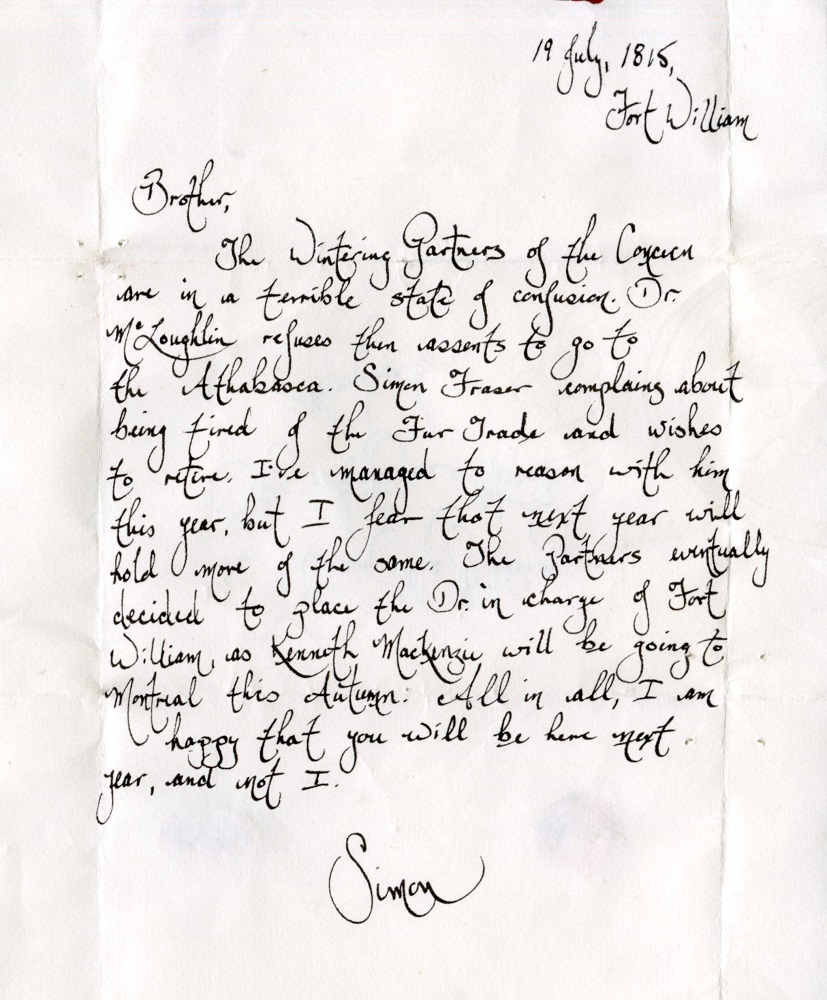 19 July, 1815,
Fort William
Brother,
The Wintering Partners of the Concern
are in a terrible state of confusion. Dr.
McLoughlin refuses then assents to go to
the Athabasca. Simon Fraser complains about
being tired of the Fur Trade and wishes
to retire. I've managed to reason with him
this year, but I fear that next year will
hold more of the same. The Partners eventually
decided to place the Dr. in charge of Fort
William, as Kenneth Mackenzie will be going to
Montreal this Autumn. All in all, I am
happy that you will be here next
year, and not I.
Simon